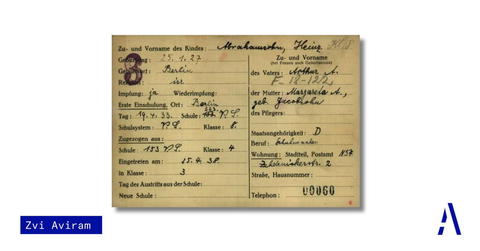 Zu- und Vorname des Kindes: Abrahamsohn, Heinz
Geburtstag: 25.1.27
Geburtsort: Berlin
isr
Impfung: ja Wiederimpfung:
Erste Einschulung, Ort: Berlin
Tag: 19.4.33. Schule: V.S.
Schulsystem: V.S. Klasse: 8.
Zugezogen aus:
Schule: 153 V.S. Klasse: 4
Eingetreten am: 25.4.38.
in Klasse: 3
Tag des Austritts aus der Schule:
Neue Schule:
Zu- und Vorname
(bei Frauen auch Geburtsname)
des Vaters: Arthur A.
der Mutter: Margarete A.,
geb. Jacobsohn
des Pflegers:
Staatsangehörigkeit: D
Beruf:
Wohnung: Stadtteil, Postamt N54
Straße, Hausnummer:
Telephon: 00060
8
Zvi Aviram